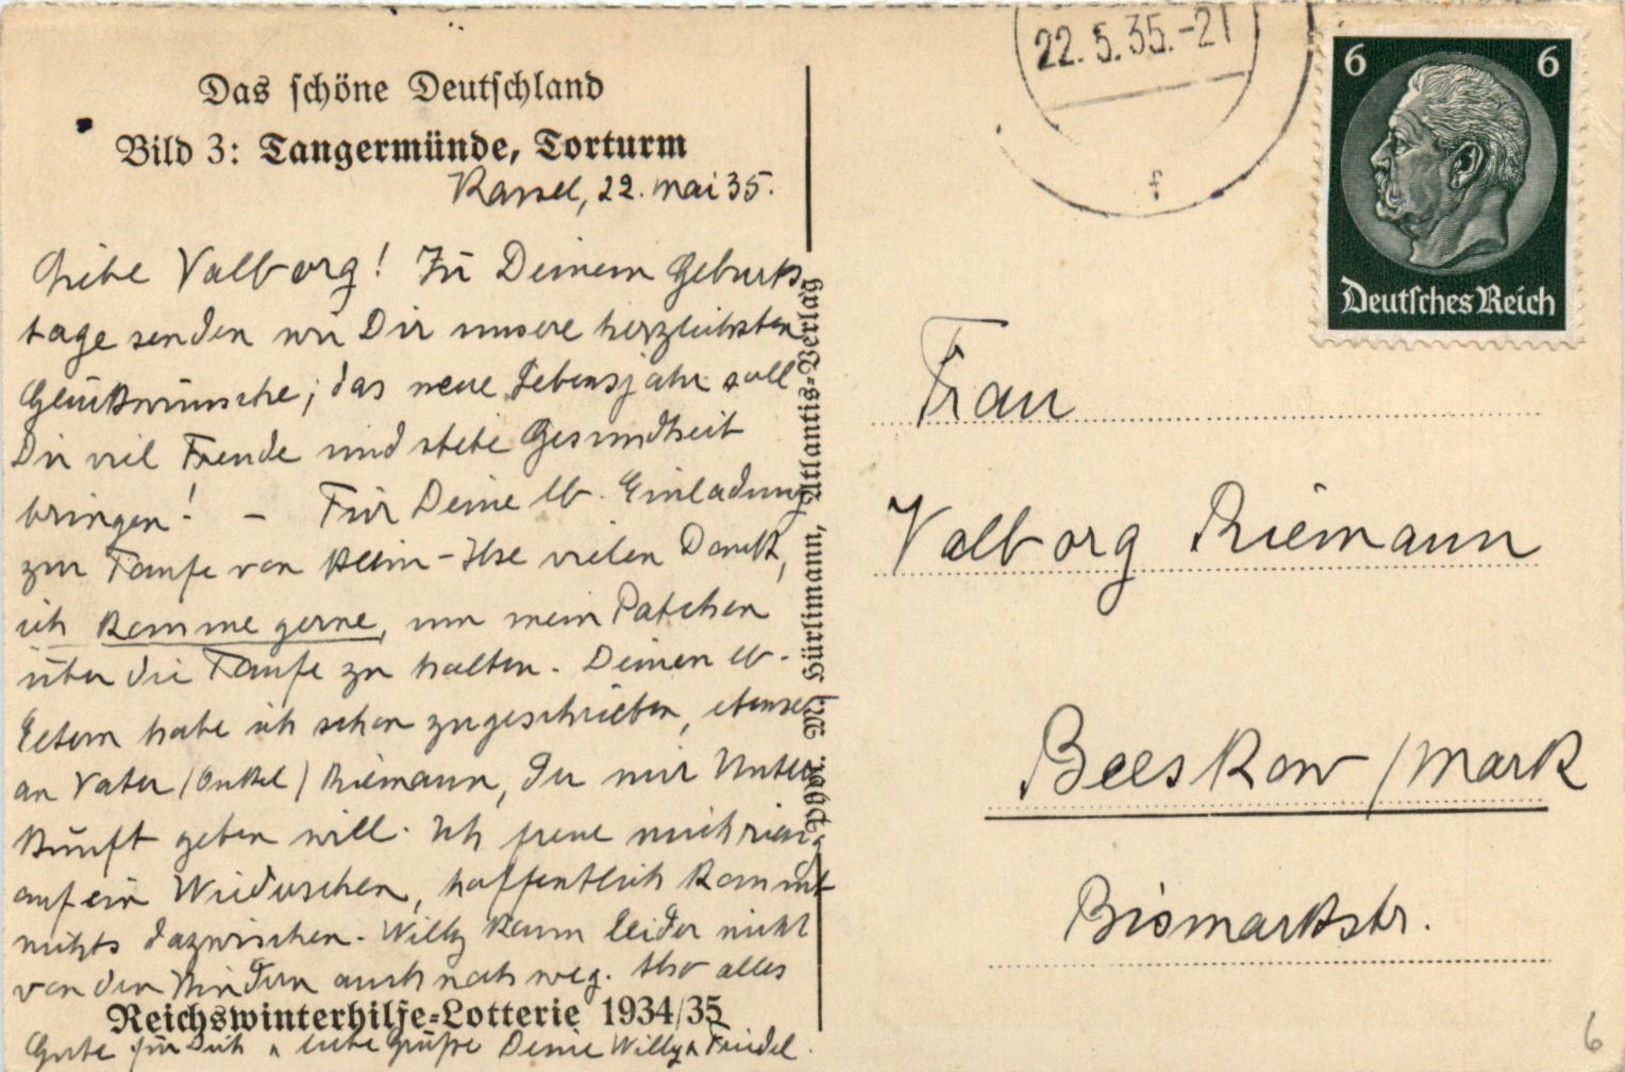 Das schöne Deutschland
Bild 3: Tangermünde, Torturm
Kassel, 22. Mai 35.
Liebe Valborg! Zu Deinem Geburts-
tage senden wir Dir unsere herzlichsten
Glückwünsche; das neue Lebensjahr soll
Dir viel Freude und stete Gesundheit
bringen! – Für Deine lb. Einladung
zur Taufe von Klein-Ilse vielen Dank,
ich komme gerne, um mein Patchen
über die Taufe zu halten. Deinen lb.
Eltern habe ich schon zugeschrieben, ebenso
an Vater (Onkel) Riemann, der mir Unter-
kunft geben will. Ich freue mich
auf ein Wiedersehen, hoffentlich kommt
nichts dazwischen. Willy kann leider nicht
von den Kindern auch noch weg. Also alles
Reichswinterhilfe-Lotterie 1934/35
Gute für Dich u liebe Grüße Deine Willy u Friedel.
Phot. M. Hürlimann, Atlantis-Verlag
22.5.35.-21
f
6 6
Deutsches Reich
Frau
Valborg Riemann
Beeskow/Mark
Bismarkstr.
6